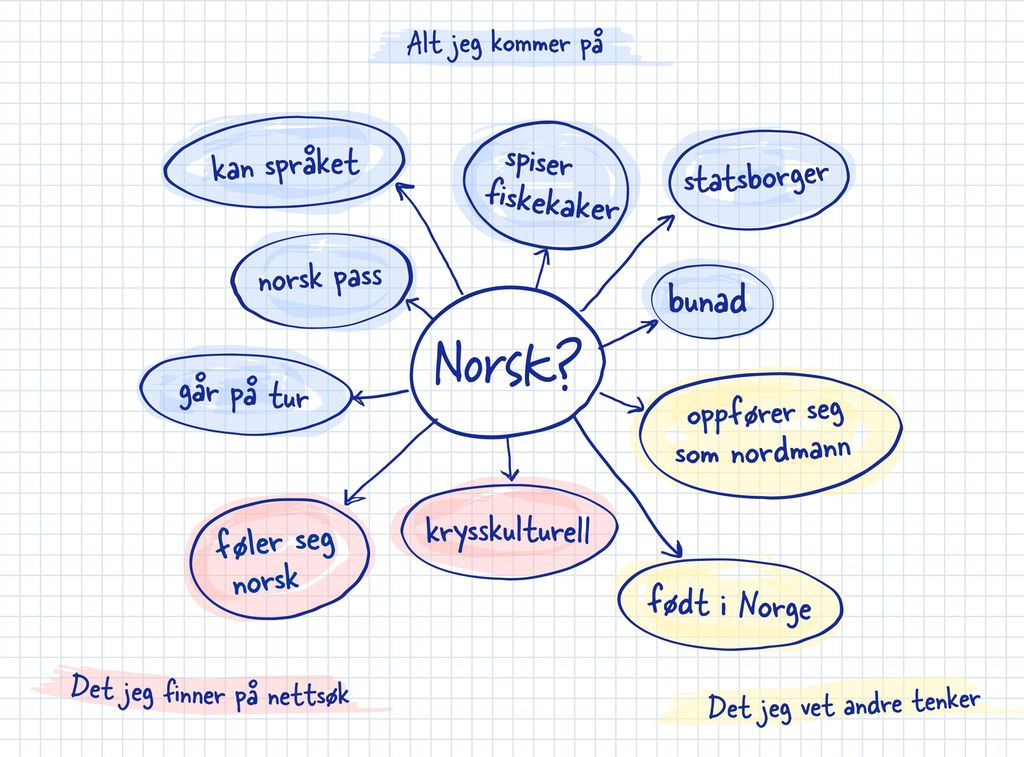 Alt jeg kommer på
kan språket
spiser
fiskekaker
statsborger
norsk pass
bunad
Norsk?
går på tur
oppfører seg
som nordmann
føler seg
norsk
krysskulturell
født i Norge
Det jeg finner på nettsøk
Det jeg vet andre tenker